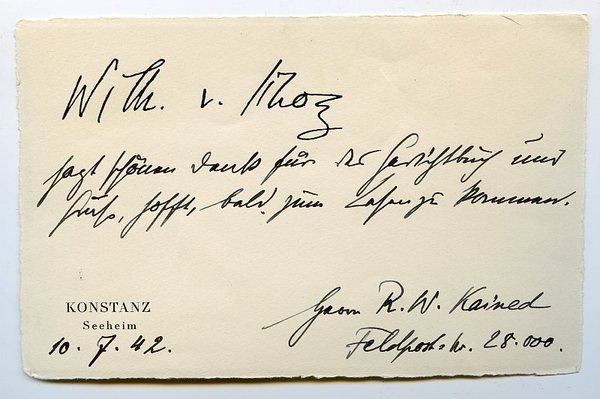 Wilh. v. Scholz
sagt schönen Dank für das Gedichtbuch und
hofft, bald zum Lesen zu kommen.
KONSTANZ
Seeheim
10. 7. 42.
Herrn R. W. Kained
Feldpost=Nr. 28.000.